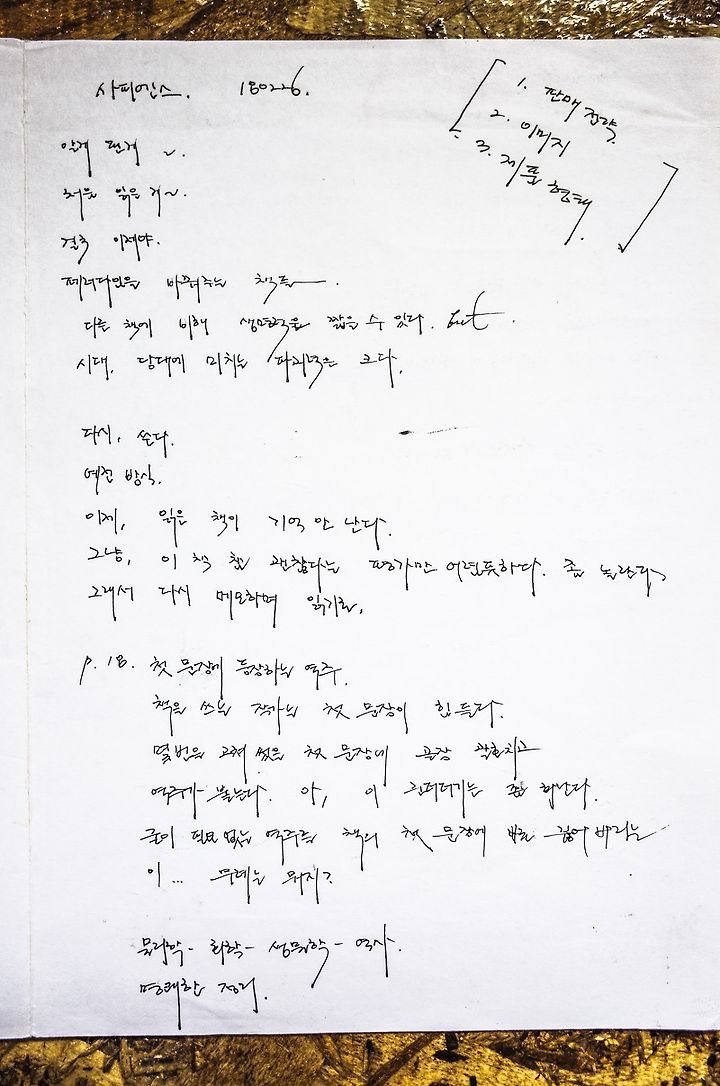 사피엔스. 180226.
1. 판매 전략.
2. 이미지
3. 제품 형태.
알게 된게 ~.
처음 읽은 게~.
결국 이제야.
패러다임을 바꿔주는 책들—.
다른 책에 비해 생명력은 짧을 수 있다. but.
시대, 당대에 미치는 파괴력은 크다.
다시, 쓴다.
예전 방식.
이제, 읽은 책이 기억 안 난다.
그냥, 이 책 참 괜찮다는 평가만 어렴풋하다. 좀 놀랍다.
그래서 다시 메모하며 읽기로.
p.18. 첫 문장에 등장하는 역주.
책을 쓰는 작가는 첫 문장이 힘들다.
몇번을 고쳐 썼을 첫 문장에 곧장 괄호치고
역주가 붙는다. 아, 이 되는 좀 화난다.
굳이 필요없는 역주를 책의 첫 문장에 바로 붙여버리는
이... 무례는 뭐지?
물리학 - 화학 - 생물학 - 역사.
명쾌한 정리.